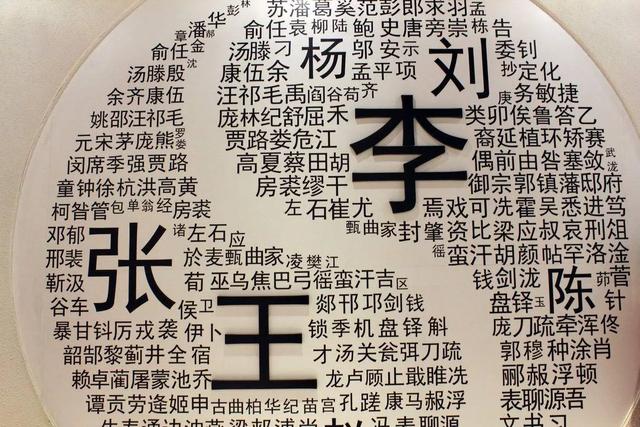 苏潘葛奚范彭郎
俞任袁柳 鲍史唐
汤滕 邬安
康伍余 孟平项
汪祁毛禹
庞林纪舒屈禾
贾路娄危江
高夏蔡田胡
房裘缪干
左石崔尤
杨
刘
李
张
王
陈
委钊
定化
务敏捷
类卯俟鲁答乙
裔延植环矫赛
偶前由咎塞敛
御宗郭镇藩邸府
焉戏可冼霍吴悉进笃
甄曲家封肇资比梁应叔哀刑俎
蛮汗胡颜帖罕洛淦
钱剑泷
盘铎
针
庞刀疏牵浑佟
郭穆种涂肖
郦郝浮顿
表聊源吾
潘华
俞任金
汤滕殷
余齐康伍
姚邵汪祁毛
元宋茅庞熊
闵席季强贾路
童钟徐杭洪高黄
柯昝管包单翁经房裘
邓郁 诸左石应
邢裴 於麦甄曲家凌樊江
靳汲 荀巫乌焦巴弓徭蛮汗吉区
谷车 侯卫 郯邗邛剑钱
暴甘钭厉戎袭伊卜 锁季机盘铎斛
韶郜黎蓟井全宿 才汤关瓮弭刀疏
赖卓蔺屠蒙池乔 龙卢顾止戢睢冼
谭贡劳逄姬申古曲柏华纪苗宫孔蹉康马郝浮